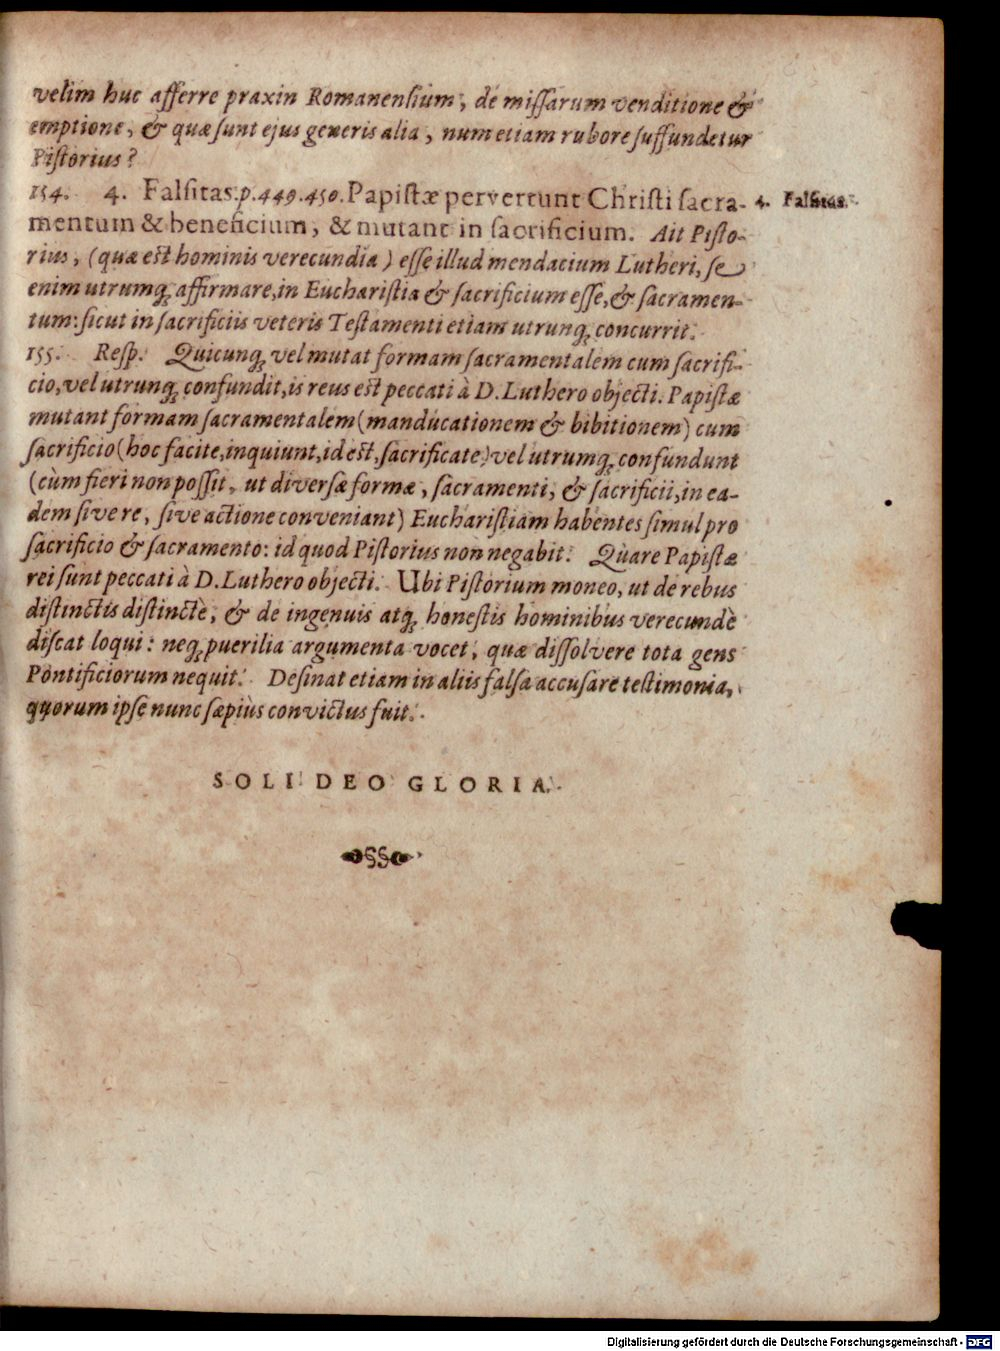 velim huc afferre praxin Romanensium, de missarum venditione &
emptione, & quæ sunt ejus generis alia, num etiam rubore suffundetur
Pistorius?
154. 4. Falsitas. p. 449. 450. Papistæ pervertunt Christi sacra-
4. Falsitas.
mentum & beneficium, & mutant in sacrificium. Ait Pisto-
rius, (quæ est hominis verecundia) esse illud mendacium Lutheri, se
enim utrumq; affirmare, in Eucharistia & sacrificium esse, & sacramen-
tum: sicut in sacrificiis veteris Testamenti etiam utrunq; concurrit.
155. Resp. Quicunq; vel mutat formam sacramentalem cum sacrifi-
cio, vel utrunq; confundit, is reus est peccati à D. Luthero objecti. Papistæ
mutant formam sacramentalem (manducationem & bibitionem) cum
sacrificio (hoc facite, inquiunt, id est, sacrificate) vel utrumq; confundunt
(cùm fieri non possit, ut diversæ formæ, sacramenti, & sacrificii, in ea-
dem sive re, sive actione conveniant) Eucharistiam habentes simul pro
sacrificio & sacramento: id quod Pistorius non negabit. Quare Papistæ
rei sunt peccati à D. Luthero objecti. Ubi Pistorium moneo, ut de rebus
distinctis distinctè, & de ingenuis atq; honestis hominibus verecundè
discat loqui: neq; puerilia argumenta vocet, quæ dissolvere tota gens
Pontificiorum nequit. Desinat etiam in aliis falsa accusare testimonia,
quorum ipse nunc sæpiùs convictus fuit.
SOLI DEO GLORIA.
Digitalisierung gefördert durch die Deutsche Forschungsgemeinschaft - DFG